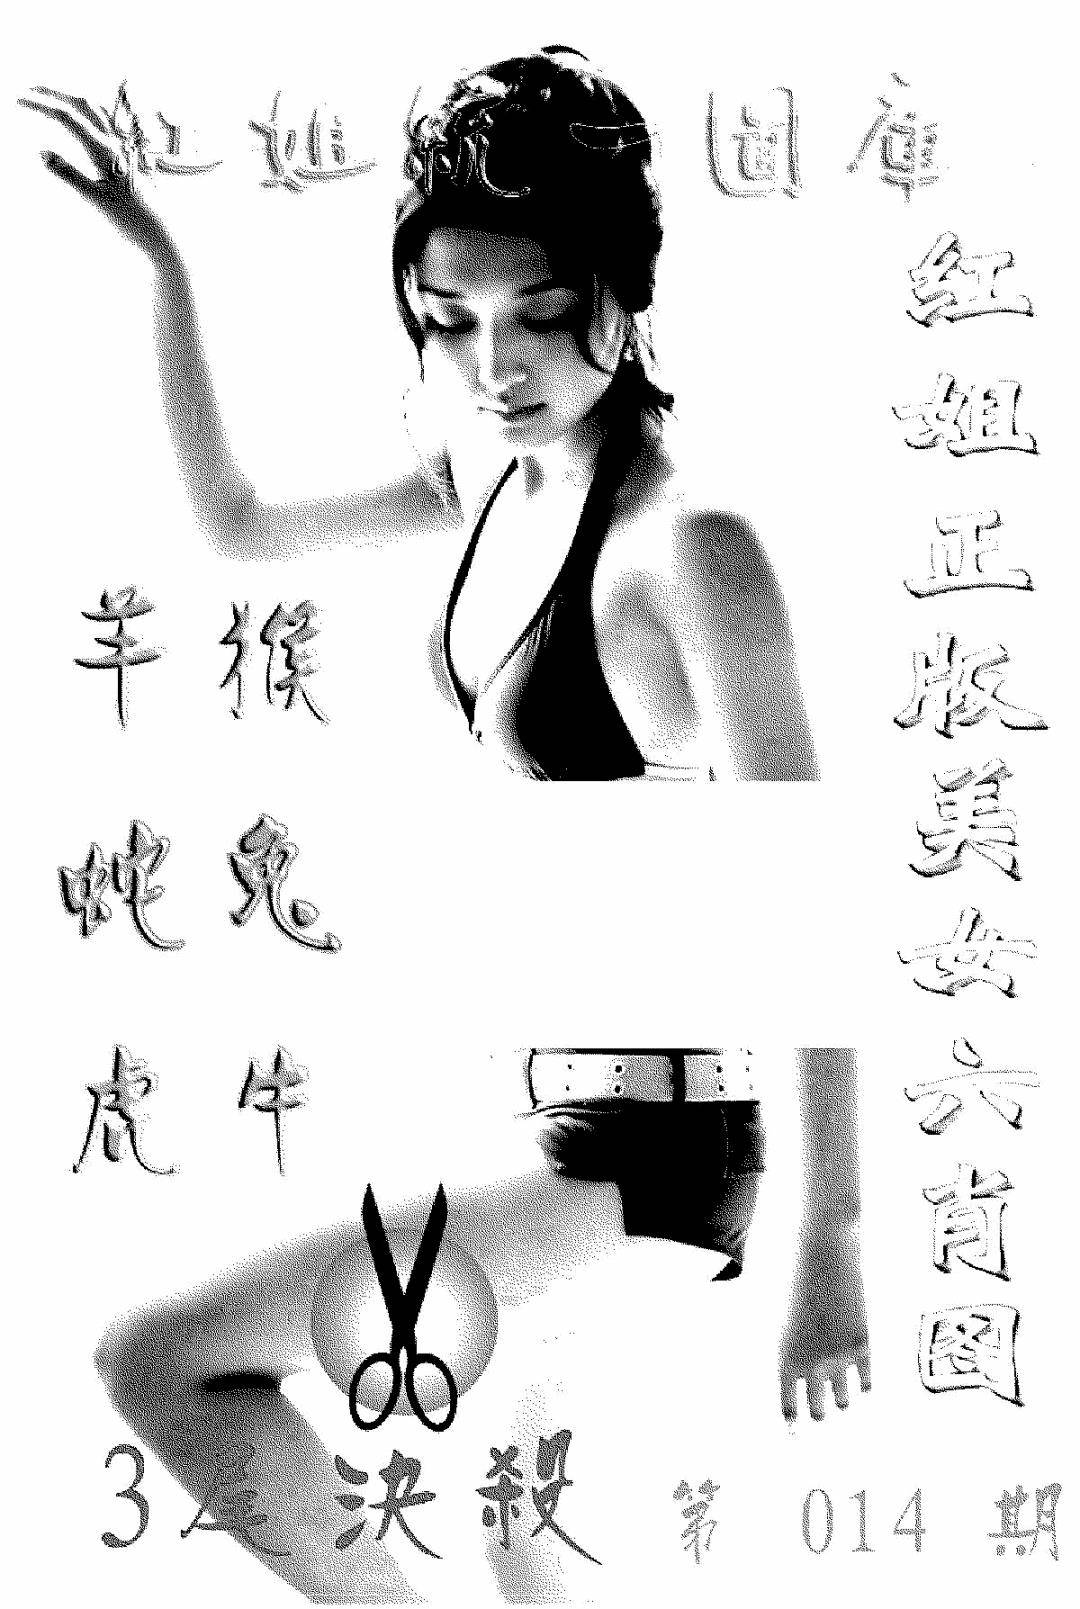 紅姐統一圖庫
紅姐正版美女六肖圖
羊猴
蛇兔
虎牛
3尾決殺
第014期